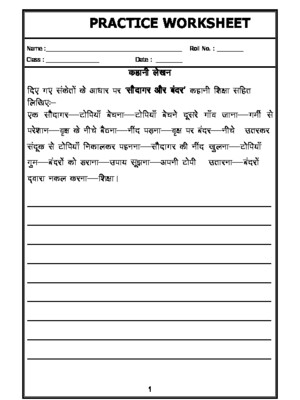 PRACTICE WORKSHEET
Name : Roll No. :
Class : Date :
कहानी लेखन
दिए गए संकेतों के आधार पर 'सौदागर और बंदर' कहानी शिक्षा सहित
लिखिए:-
एक सौदागर—टोपियाँ बेचना—टोपियाँ बेचने दूसरे गाँव जाना—गर्मी से
परेशान—वृक्ष के नीचे बैठना—नींद पड़ना—वृक्ष पर बंदर—नीचे उतरकर
संदूक से टोपियाँ निकालकर पहनना—सौदागर की नींद खुलना—टोपियाँ
गुम—बंदरों को डराना—उपाय सूझना—अपनी टोपी उतारना—बंदरों
द्वारा नकल करना—शिक्षा।
1